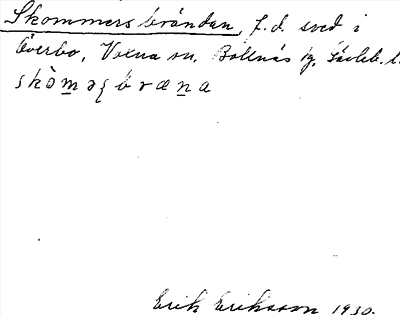 Skommersbrändan, f.d. sved i
Överbo, Voxna sn, Bollnäs tg. Gävleb. l.
skòm̲əʂbræn̲a
Erik Eriksson 1930.